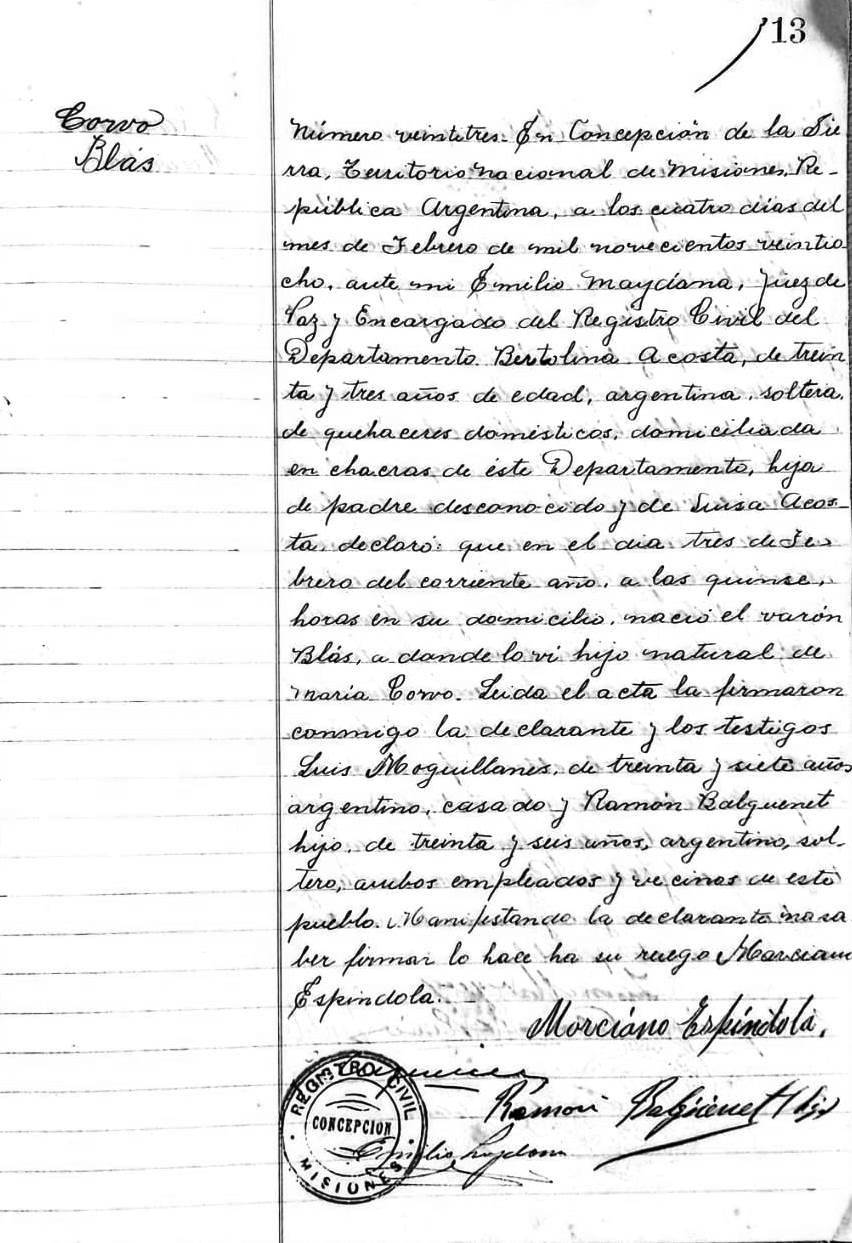 13
Corvo
Blás
Número veintitres. En Concepción de la Sie
rra, Territorio Nacional de Misiones, Re-
pública Argentina, a los cuatro dias del
mes de Febrero de mil novecientos veintio
cho, ante mi Emilio Maydana, Juez de
Paz y Encargado del Registro Civil del
Departamento. Bertolina Acosta, de trein
ta y tres años de edad, argentina, soltera,
de quehaceres domésticos, domiciliada
en chacras de éste Departamento, hija
de padre desconocido y de Luisa Acos-
ta, declaró: que en el dia tres de Fe-
brero del corriente año, a las quinse,
horas en su domicilio, nació el varón
Blás, a donde lo vi hijo natural de
Maria Corvo. Leida el acta la firmaron
conmigo la declarante y los testigos
Luis Moguillanes, de treinta y siete años
argentino, casado y Ramón Balguenet
hijo, de treinta y seis años, argentino, sol-
tero, ambos empleados y vecinos de este
pueblo. Manifestando la declarante no sa
ber firmar lo hace ha su ruego Marciano
Espindola.
Morciáno Espíndola.
Ramón Balguenet hijo
REGISTRO CIVIL
CONCEPCION
MISIONES
Emilio